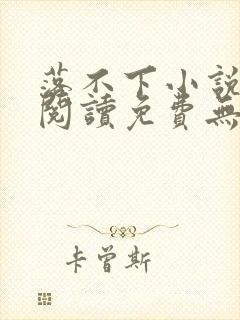 落不下小說
閱讀免費無
卡曾斯